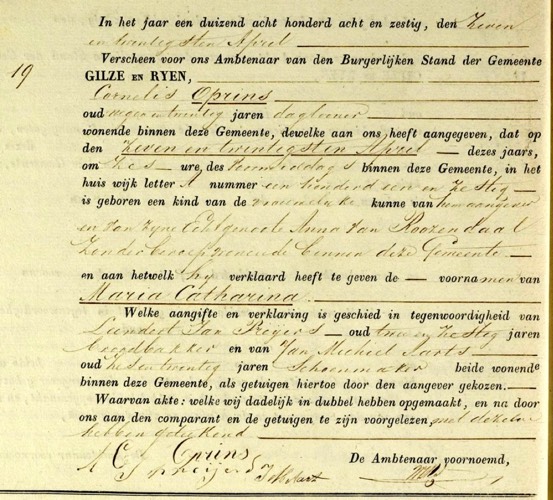 In het jaar een duizend acht honderd acht en zestig, den Zeven
en twintigsten April
Verscheen voor ons Ambtenaar van den Burgerlijken Stand der Gemeente
19
GILZE EN RYEN,
Cornelis Oprins
oud negen en twintig jaren daglooner
wonende binnen deze Gemeente, dewelke aan ons heeft aangegeven, dat op
den Zeven en twintigsten April dezes jaars,
om Zes ure, des Voormiddags binnen deze Gemeente, in het
huis wijk letter A nummer een honderd een en zestig
is geboren een kind van de vrouwelijke kunne van hem aangever
en van zijne Echtgenoote Anna van Roozendaal
zonder beroep wonende binnen deze Gemeente
en aan hetwelk hij verklaard heeft te geven de voornamen van
Maria Catharina
Welke aangifte en verklaring is geschied in tegenwoordigheid van
Jan oud twee en zestig jaren
broodbakker en van Jan Michiel Aarts
oud zes en twintig jaren Schoenmaker beide wonende
binnen deze Gemeente, als getuigen hiertoe door den aangever gekozen.
Waarvan akte: welke wij dadelijk in dubbel hebben opgemaakt, en na door
ons aan den comparant en de getuigen te zijn voorgelezen, met dezelve
hebben geteekend
C Oprins
De Ambtenaar voornoemd,
J M Aarts